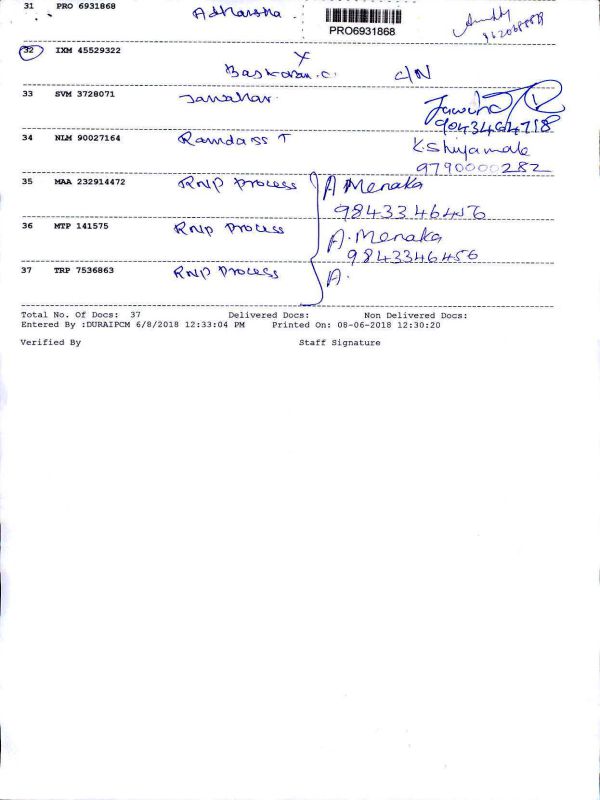 31 PRO 6931868 Adharsha PRO6931868
32 IXM 45529322 X
Baskaran.C. C/N
33 SVM 3728071 Jawahar
34 NLM 90027164 Ramdass T K Shyamala
9790000282
35 MAA 232914472 RNP Process A Menaka
9843346456
36 MTP 141575 RNP Process A. Menaka
9843346456
37 TRP 7536863 RNP Process A.
Total No. Of Docs: 37 Delivered Docs: Non Delivered Docs:
Entered By :DURAIPCM 6/8/2018 12:33:04 PM Printed On: 08-06-2018 12:30:20
Verified By Staff Signature